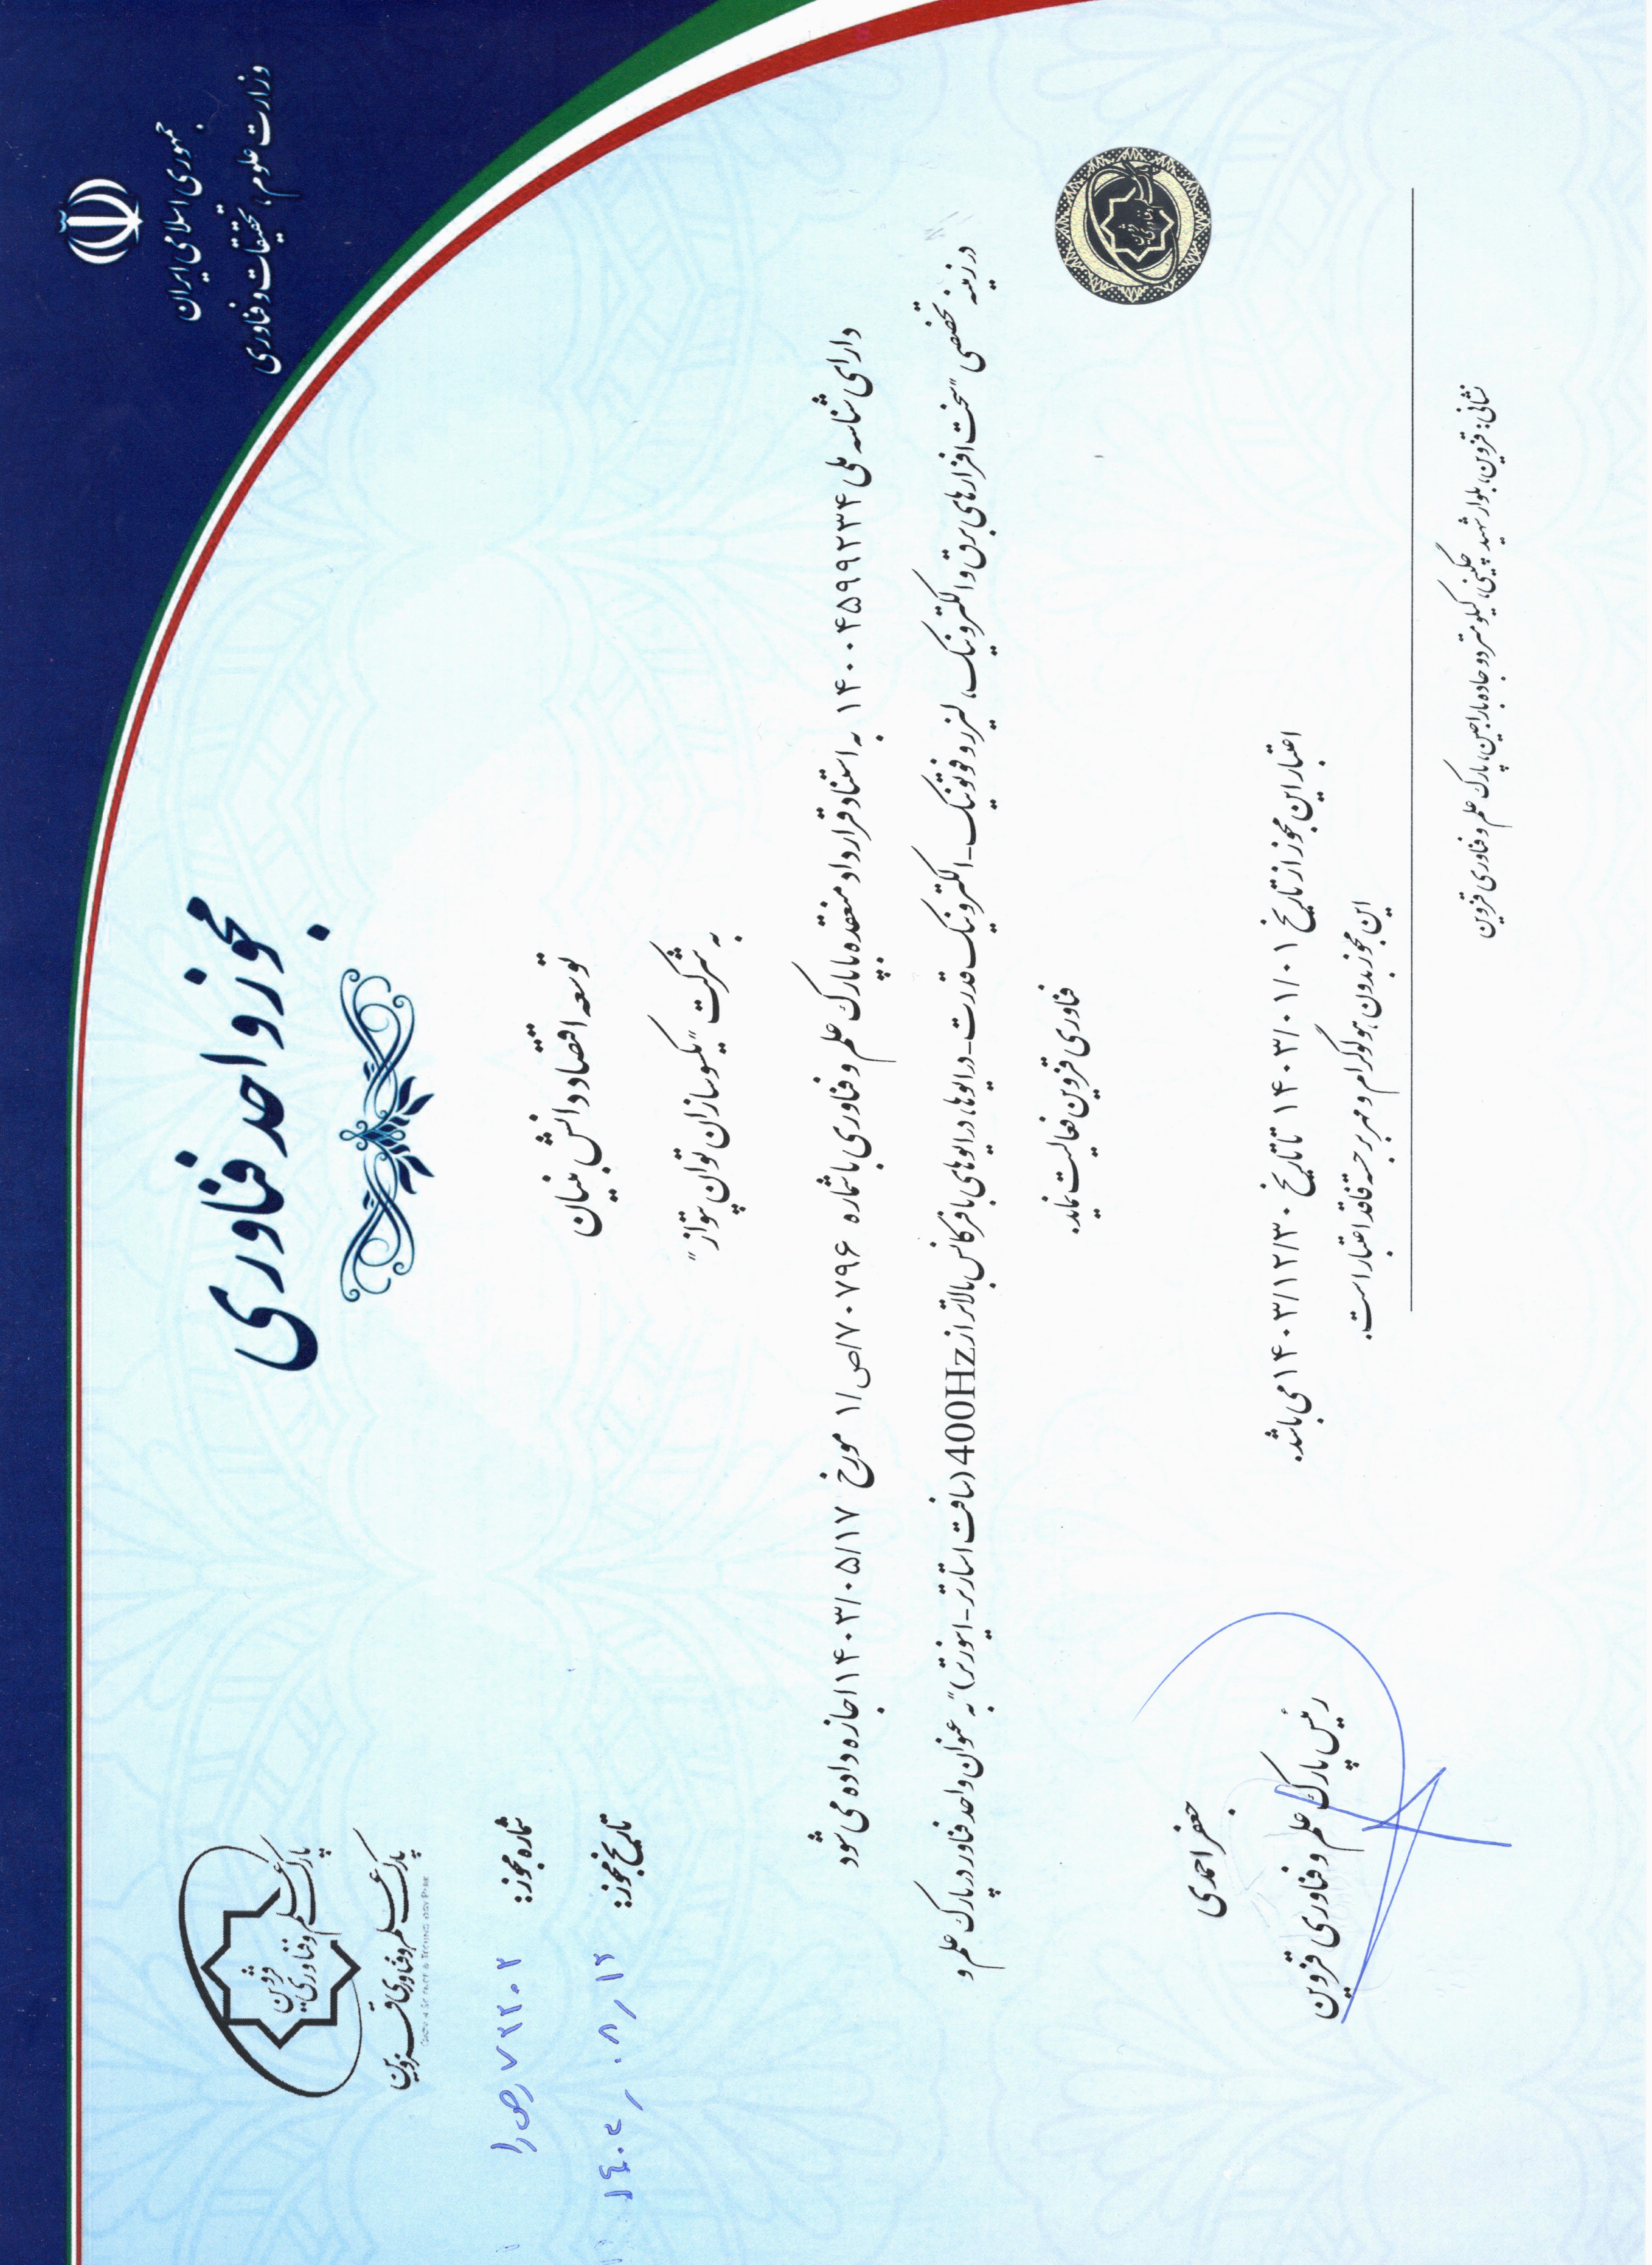 جمهوری اسلامی ایران
وزارت علوم، تحقیقات و فناوری
مجوز واحد فناوری
پارک علم و فناوری
قزوین
پارک علم و فناوری قزوین
شماره مجوز: ۷۲۲۰۲/ص/۱
تاریخ مجوز: ۱۴۰۳/۰۸/۱۲
توسعه اقتصاد دانش بنیان
به شرکت "یکسوسازان توان پرتواز"
دارای شناسه ملی ۱۴۰۰۴۵۹۹۲۳۴ به استناد قرارداد منعقده با پارک علم و فناوری با شماره ۷۰۷۹۶/ص/۱ مورخ ۱۴۰۳/۰۵/۱۷ اجازه داده می شود
در زمینه تخصصی "سخت افزارهای برق و الکترونیک، لیزر و فوتونیک-الکترونیک قدرت-درایوها، درایوهای با فرکانس بالاتر از 400Hz (سافت استارتر-اینورتر)" به عنوان واحد فناور در پارک علم و
فناوری قزوین فعالیت نماید.
اعتبار این مجوز از تاریخ ۱۴۰۳/۰۱/۰۱ تا تاریخ ۱۴۰۳/۱۲/۳۰ می باشد.
این مجوز بدون هولوگرام و مهر برجسته فاقد اعتبار است.
جعفر احمدی
رئیس پارک علم و فناوری قزوین
نشانی: قزوین، بلوار شهید چگینی، کیلومتر دو جاده باراجین، پارک علم و فناوری قزوین